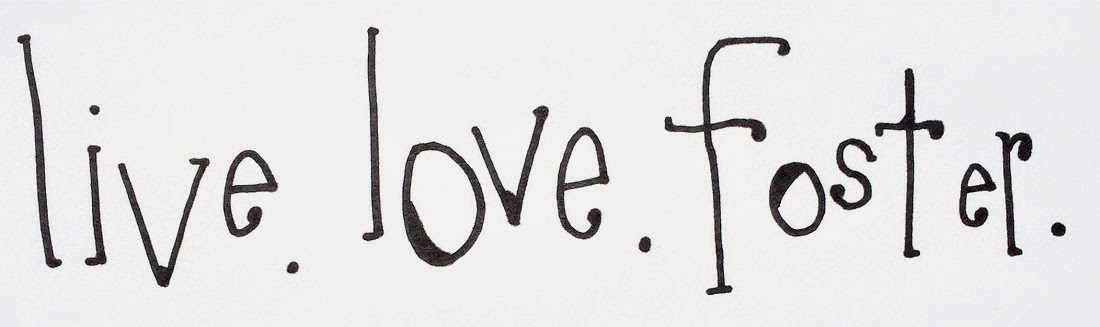 live. love. foster.